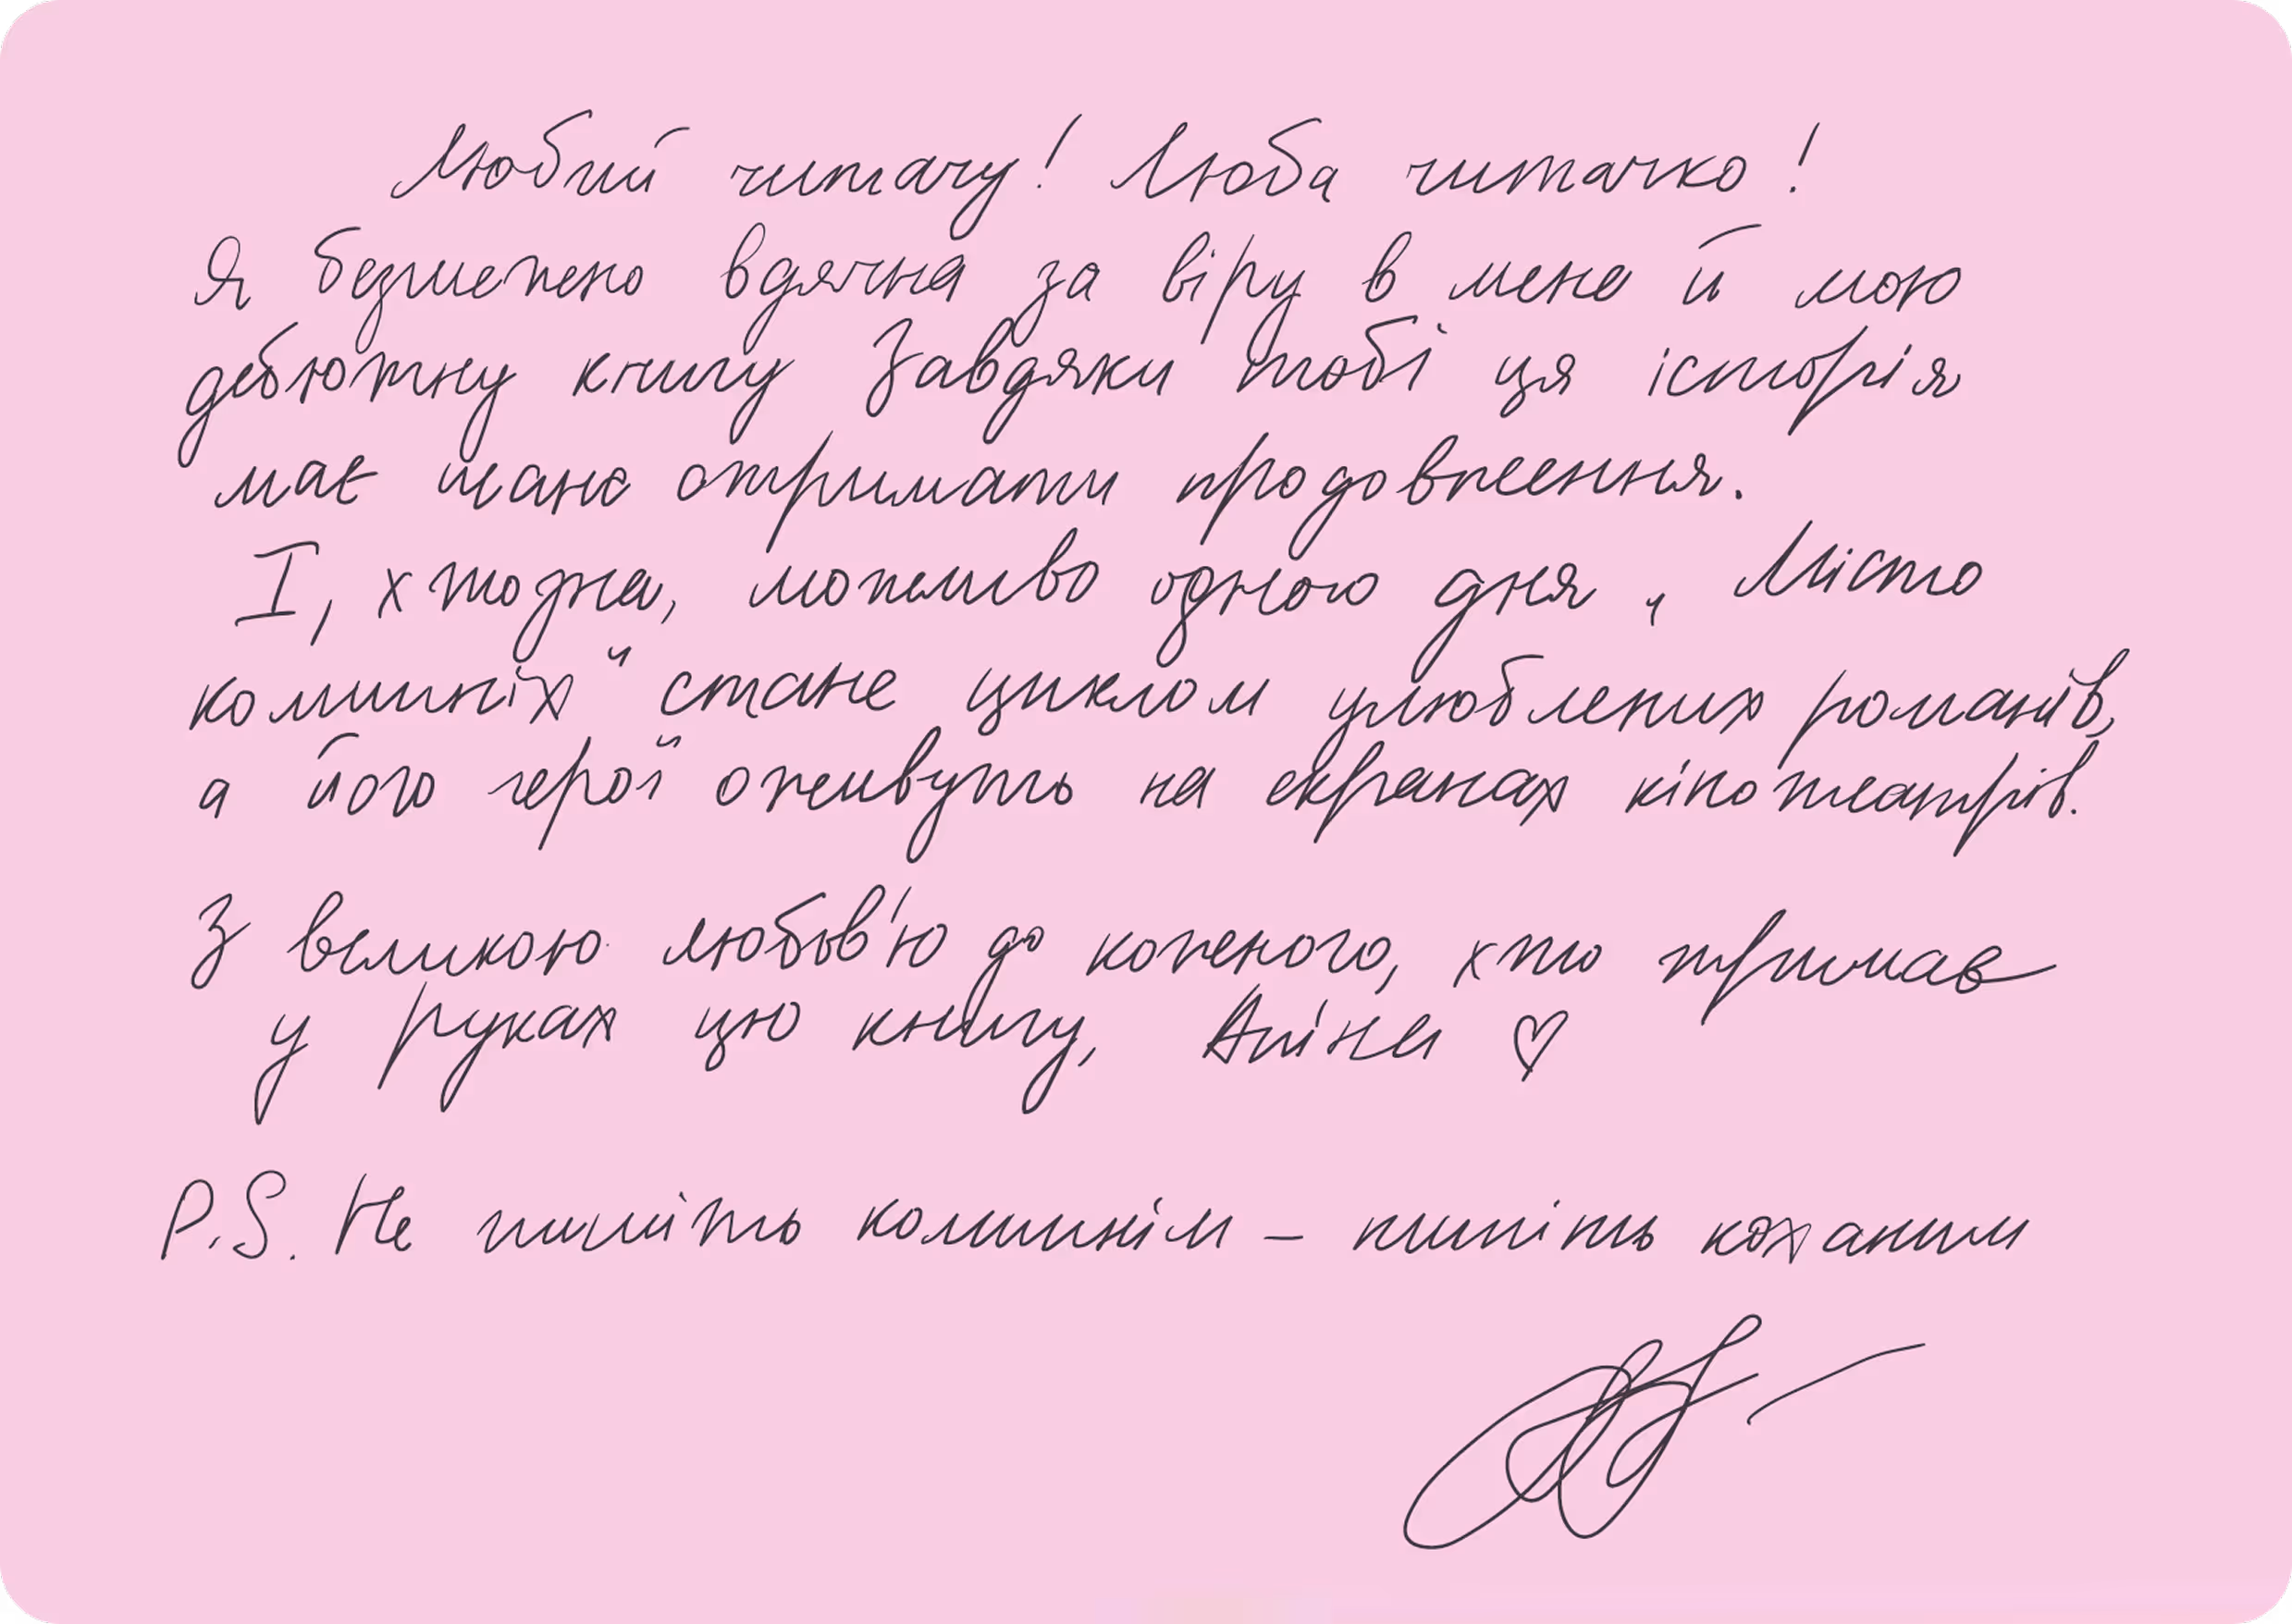 Любий читачу! Люба читачко!
Я безмежно вдячна за віру в мене й мою
дебютну книгу Завдяки тобі ця історія
має шанс отримати продовження.
І, хтозна, можливо одного дня „Місто
колишніх" стане циклом улюблених романів,
а його герої оживуть на екранах кінотеатрів.
З великою любов'ю до кожного, хто тримав
у руках цю книгу, Аліна ♡
P.S. Не пишіть колишнім – пишіть коханим